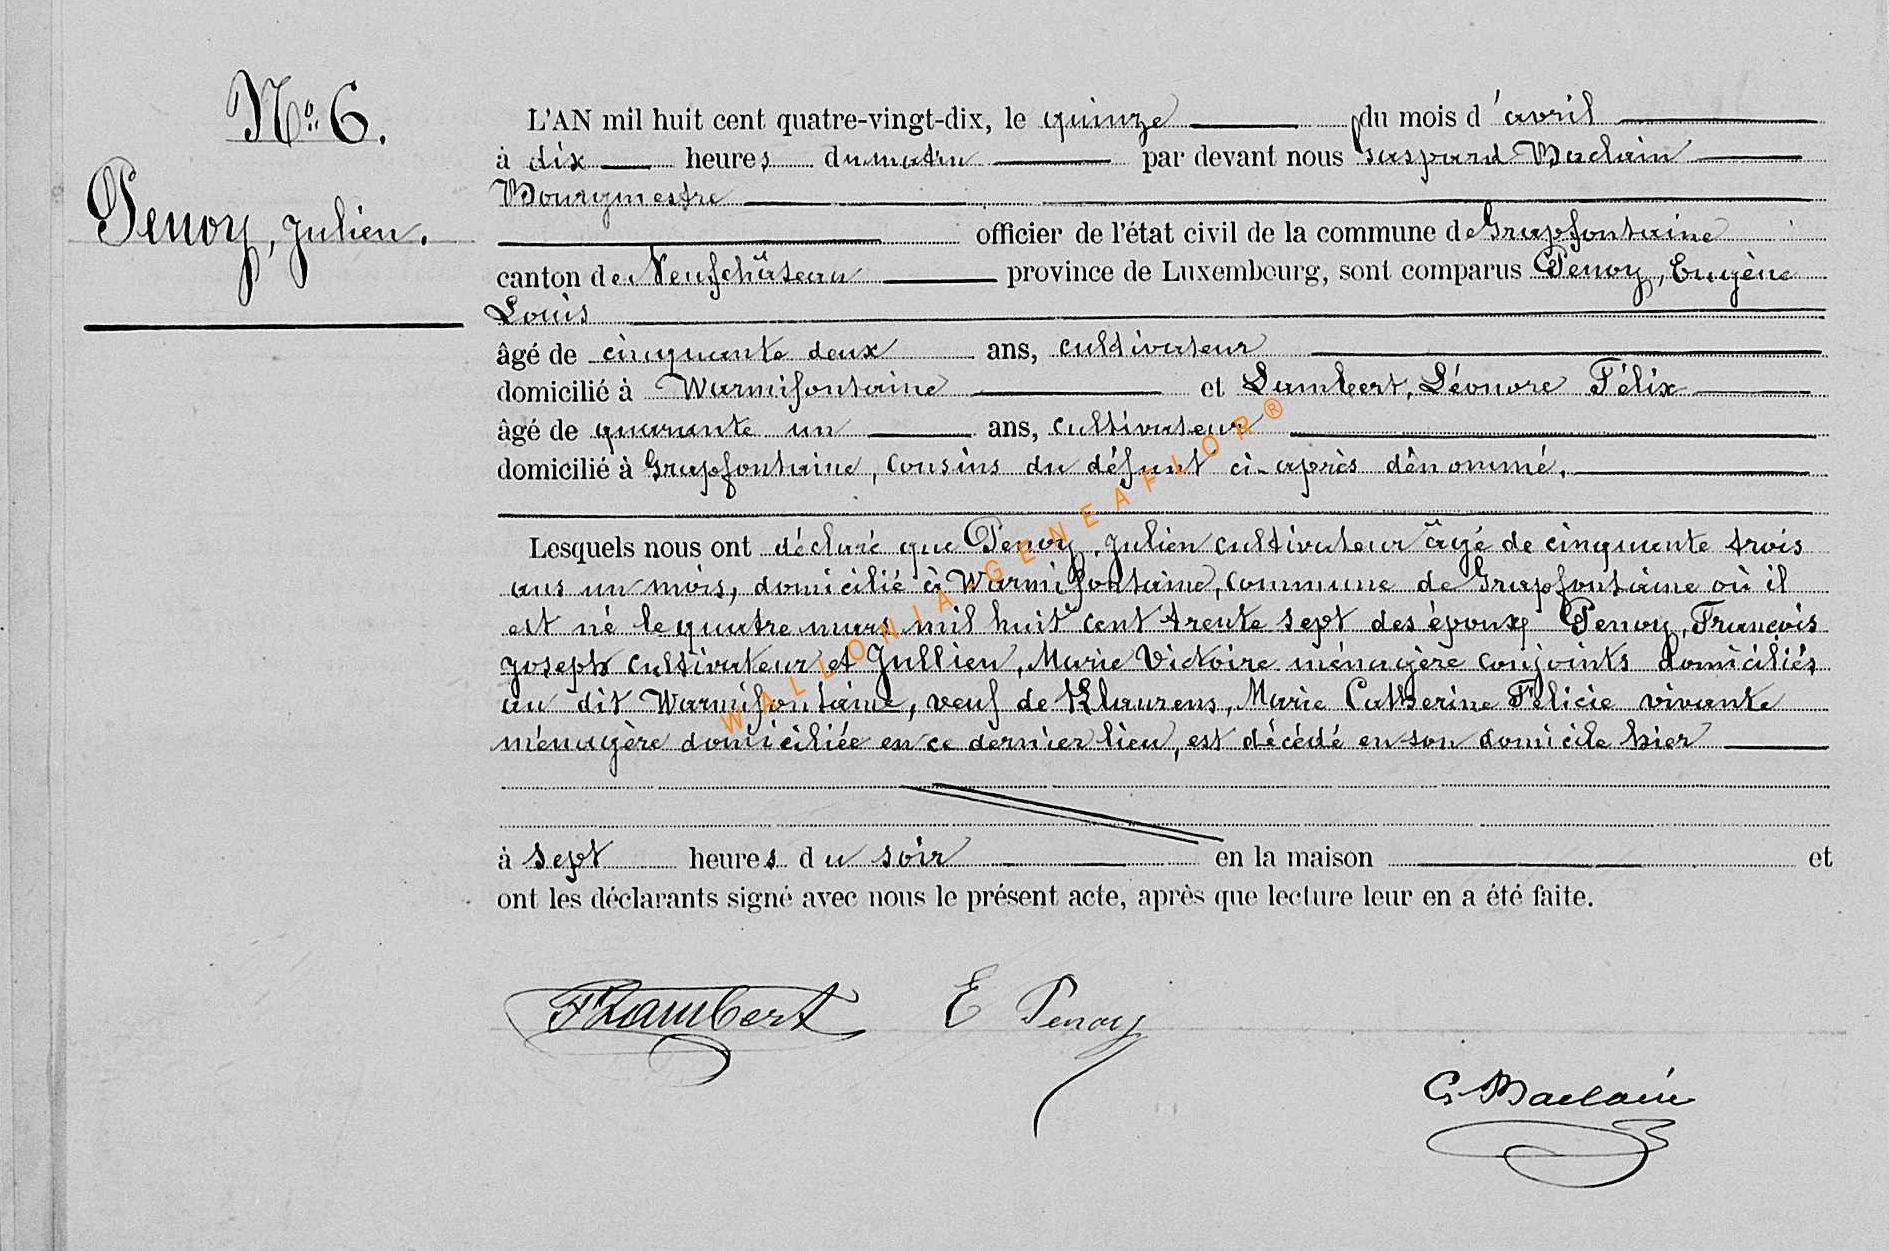 N° 6.
Penoy, Julien.
L'AN mil huit cent quatre-vingt-dix, le quinze du mois d'avril
à dix heures du matin par devant nous Gaspard Baclain
Bourgmestre
officier de l'état civil de la commune de Grapfontaine
canton de Neufchâteau province de Luxembourg, sont comparus Penoy, Eugène
Louis
âgé de cinquante deux ans, cultivateur
domicilié à Warmifontaine et Lambert, Léonore Félix
âgé de quarante un ans, cultivateur
domicilié à Grapfontaine, cousins du défunt ci-après dénommé.
Lesquels nous ont déclaré que Penoy, Julien cultivateur âgé de cinquante trois
ans un mois, domicilié à Warmifontaine, commune de Grapfontaine où il
est né le quatre mars mil huit cent trente sept des époux Penoy, François
Joseph cultivateur et Jullien, Marie Victoire ménagère conjoints domiciliés
au dit Warmifontaine, veuf de Klaurens, Marie Catherine Félicie vivante
ménagère domiciliée en ce dernier lieu, est décédé en son domicile hier
à sept heures du soir en la maison et
ont les déclarants signé avec nous le présent acte, après que lecture leur en a été faite.
FLambert E Penoy
G. Baclain
WALLONIA-GENEAFLOR®